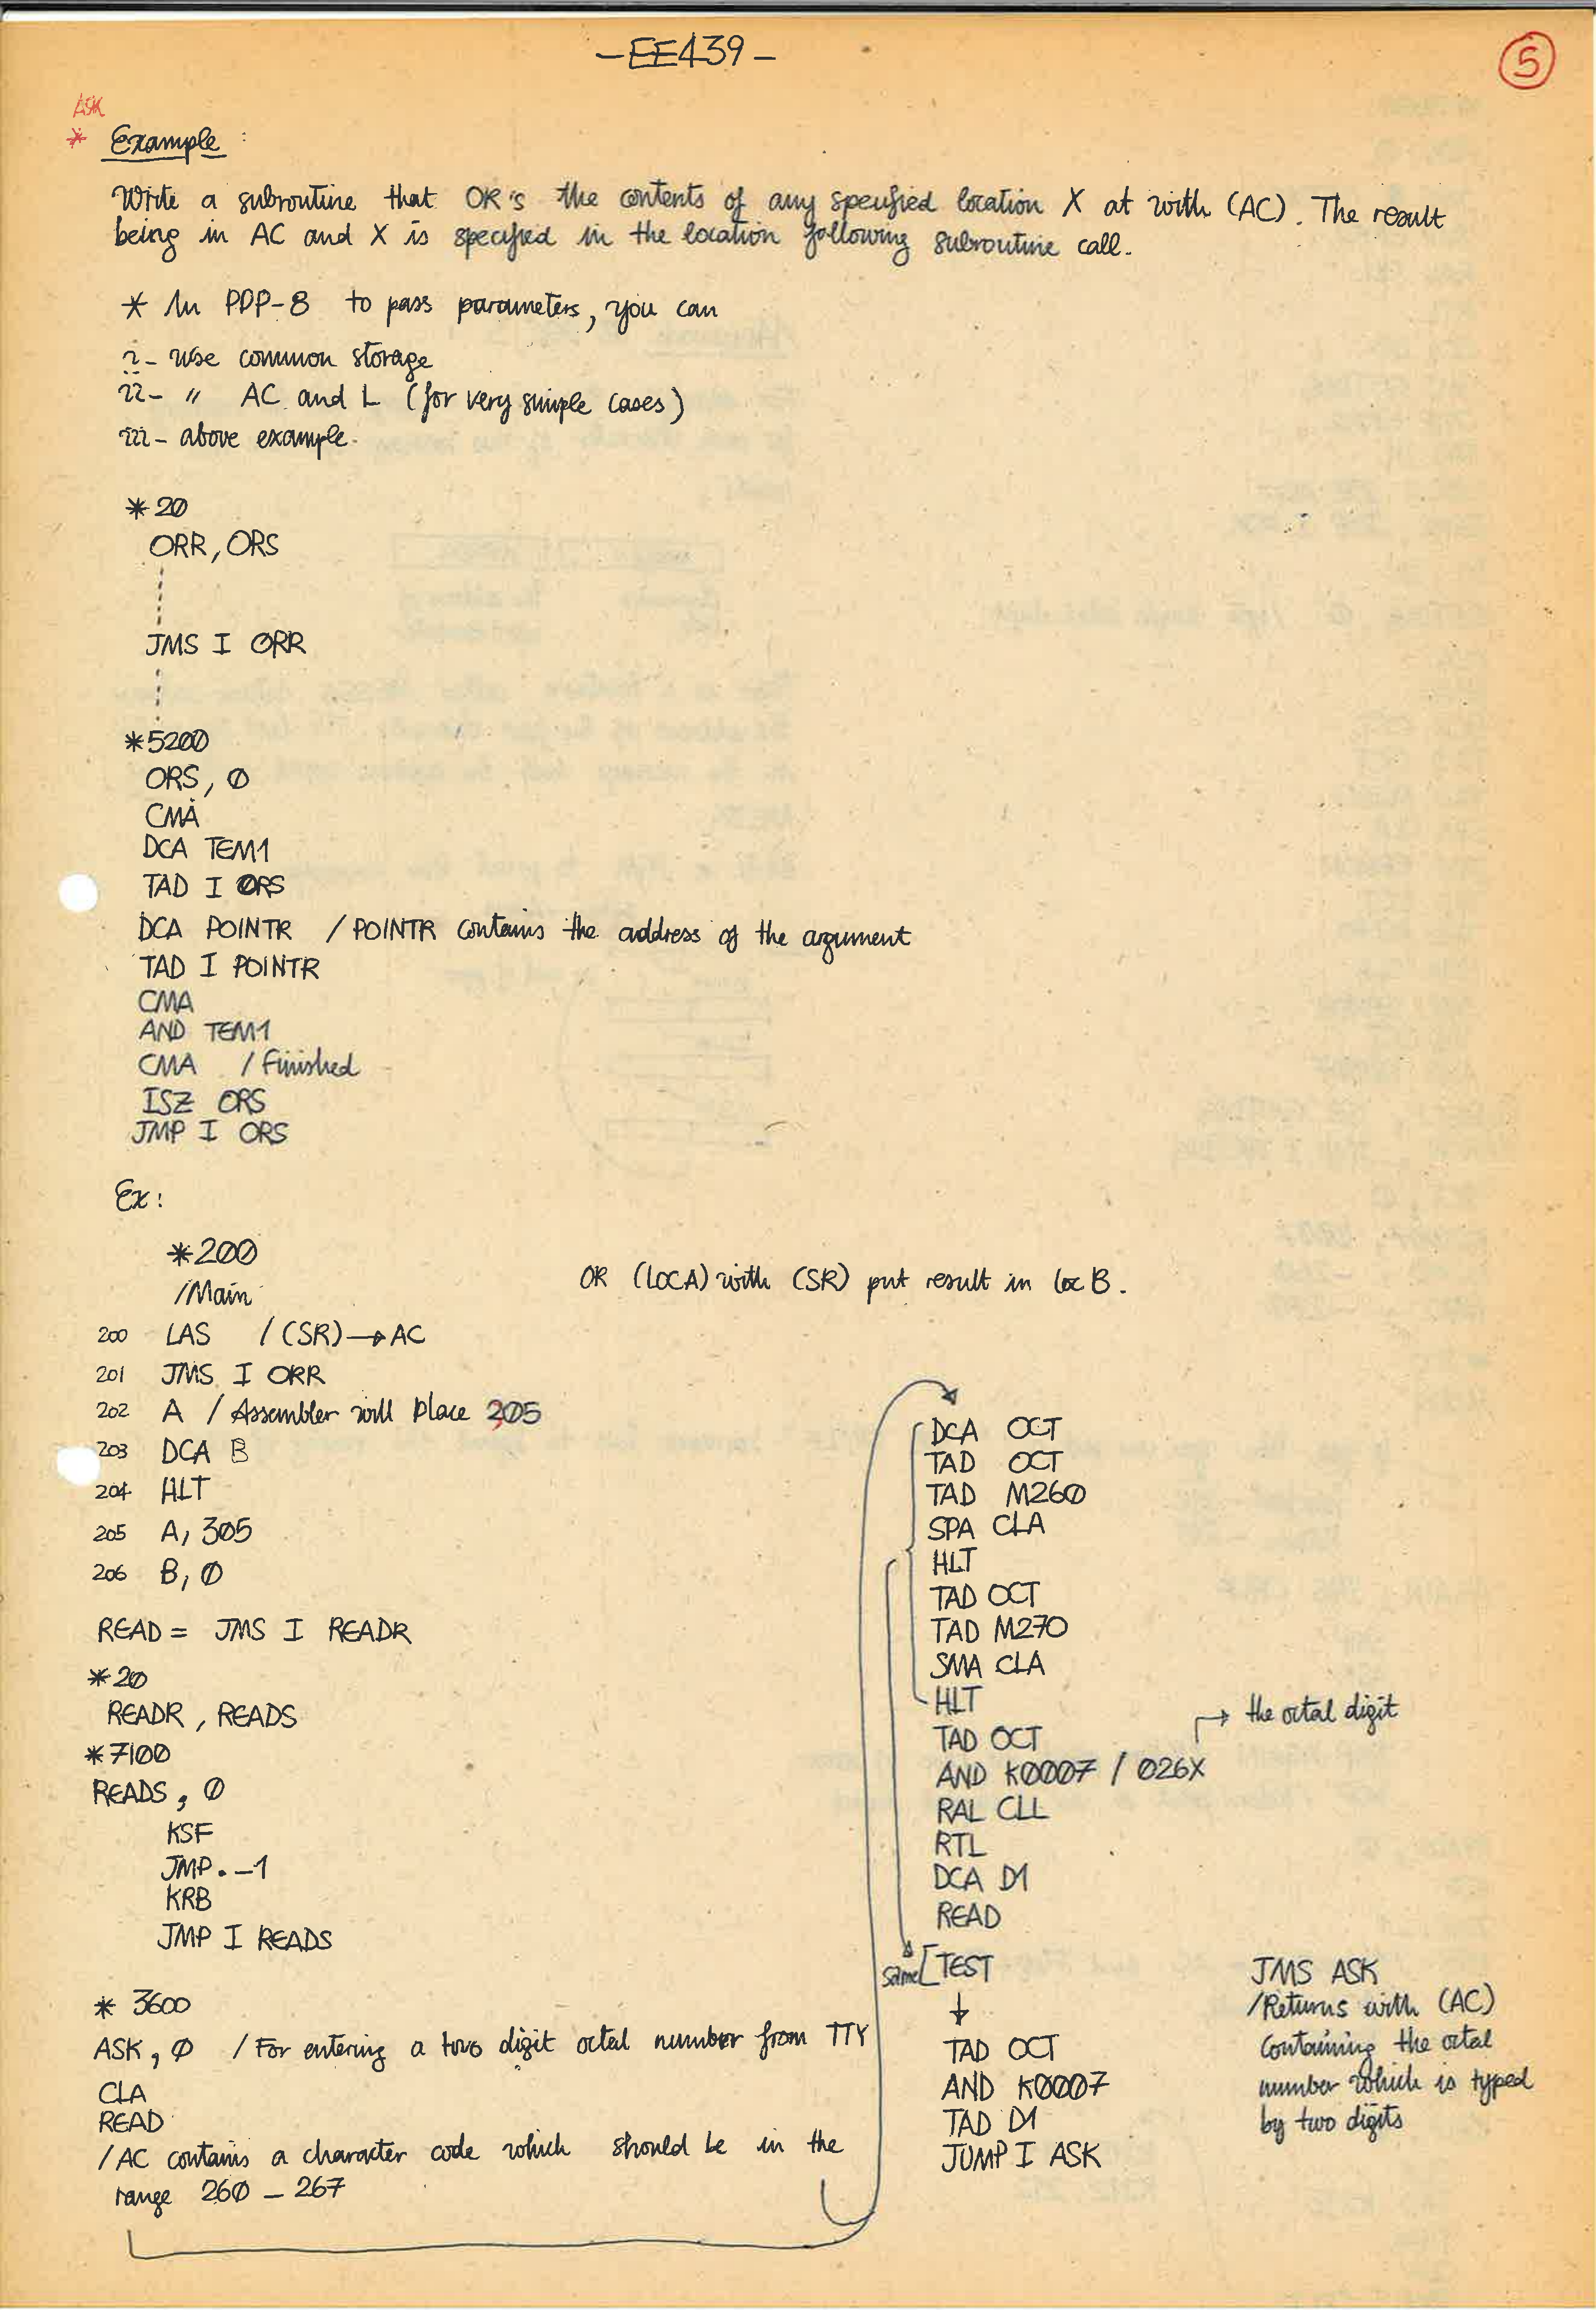 -EE439-
5
ASK
* Example :
Write a subroutine that OR's the contents of any specified location X at with (AC). The result
being in AC and X is specified in the location following subroutine call.
* In PDP-8 to pass parameters, you can
i- use common storage
ii- " AC and L (for very simple cases)
iii- above example.
*20
ORR, ORS
JMS I ORR
*5200
ORS, Ø
CMA
DCA TEM1
TAD I ORS
DCA POINTR / POINTR contains the address of the argument
TAD I POINTR
CMA
AND TEM1
CMA / Finished
ISZ ORS
JMP I ORS
Ex:
*200
/Main
OR (LOCA) with (SR) put result in loc B.
200 LAS / (SR)→AC
201 JMS I ORR
202 A / Assembler will place 205
203 DCA B
204 HLT
205 A, 305
206 B, Ø
READ = JMS I READR
*20
READR, READS
*7100
READS, Ø
KSF
JMP.-1
KRB
JMP I READS
* 3600
ASK, Ø / For entering a two digit octal number from TTY
CLA
READ
/AC contains a character code which should be in the
range 260 - 267
DCA OCT
TAD OCT
TAD M260
SPA CLA
HLT
TAD OCT
TAD M270
SMA CLA
HLT
→ the octal digit
TAD OCT
AND K0007 / 026X
RAL CLL
RTL
DCA D1
READ
same [TEST
↓
TAD OCT
AND K0007
TAD D1
JUMP I ASK
JMS ASK
/Returns with (AC)
containing the octal
number which is typed
by two digits